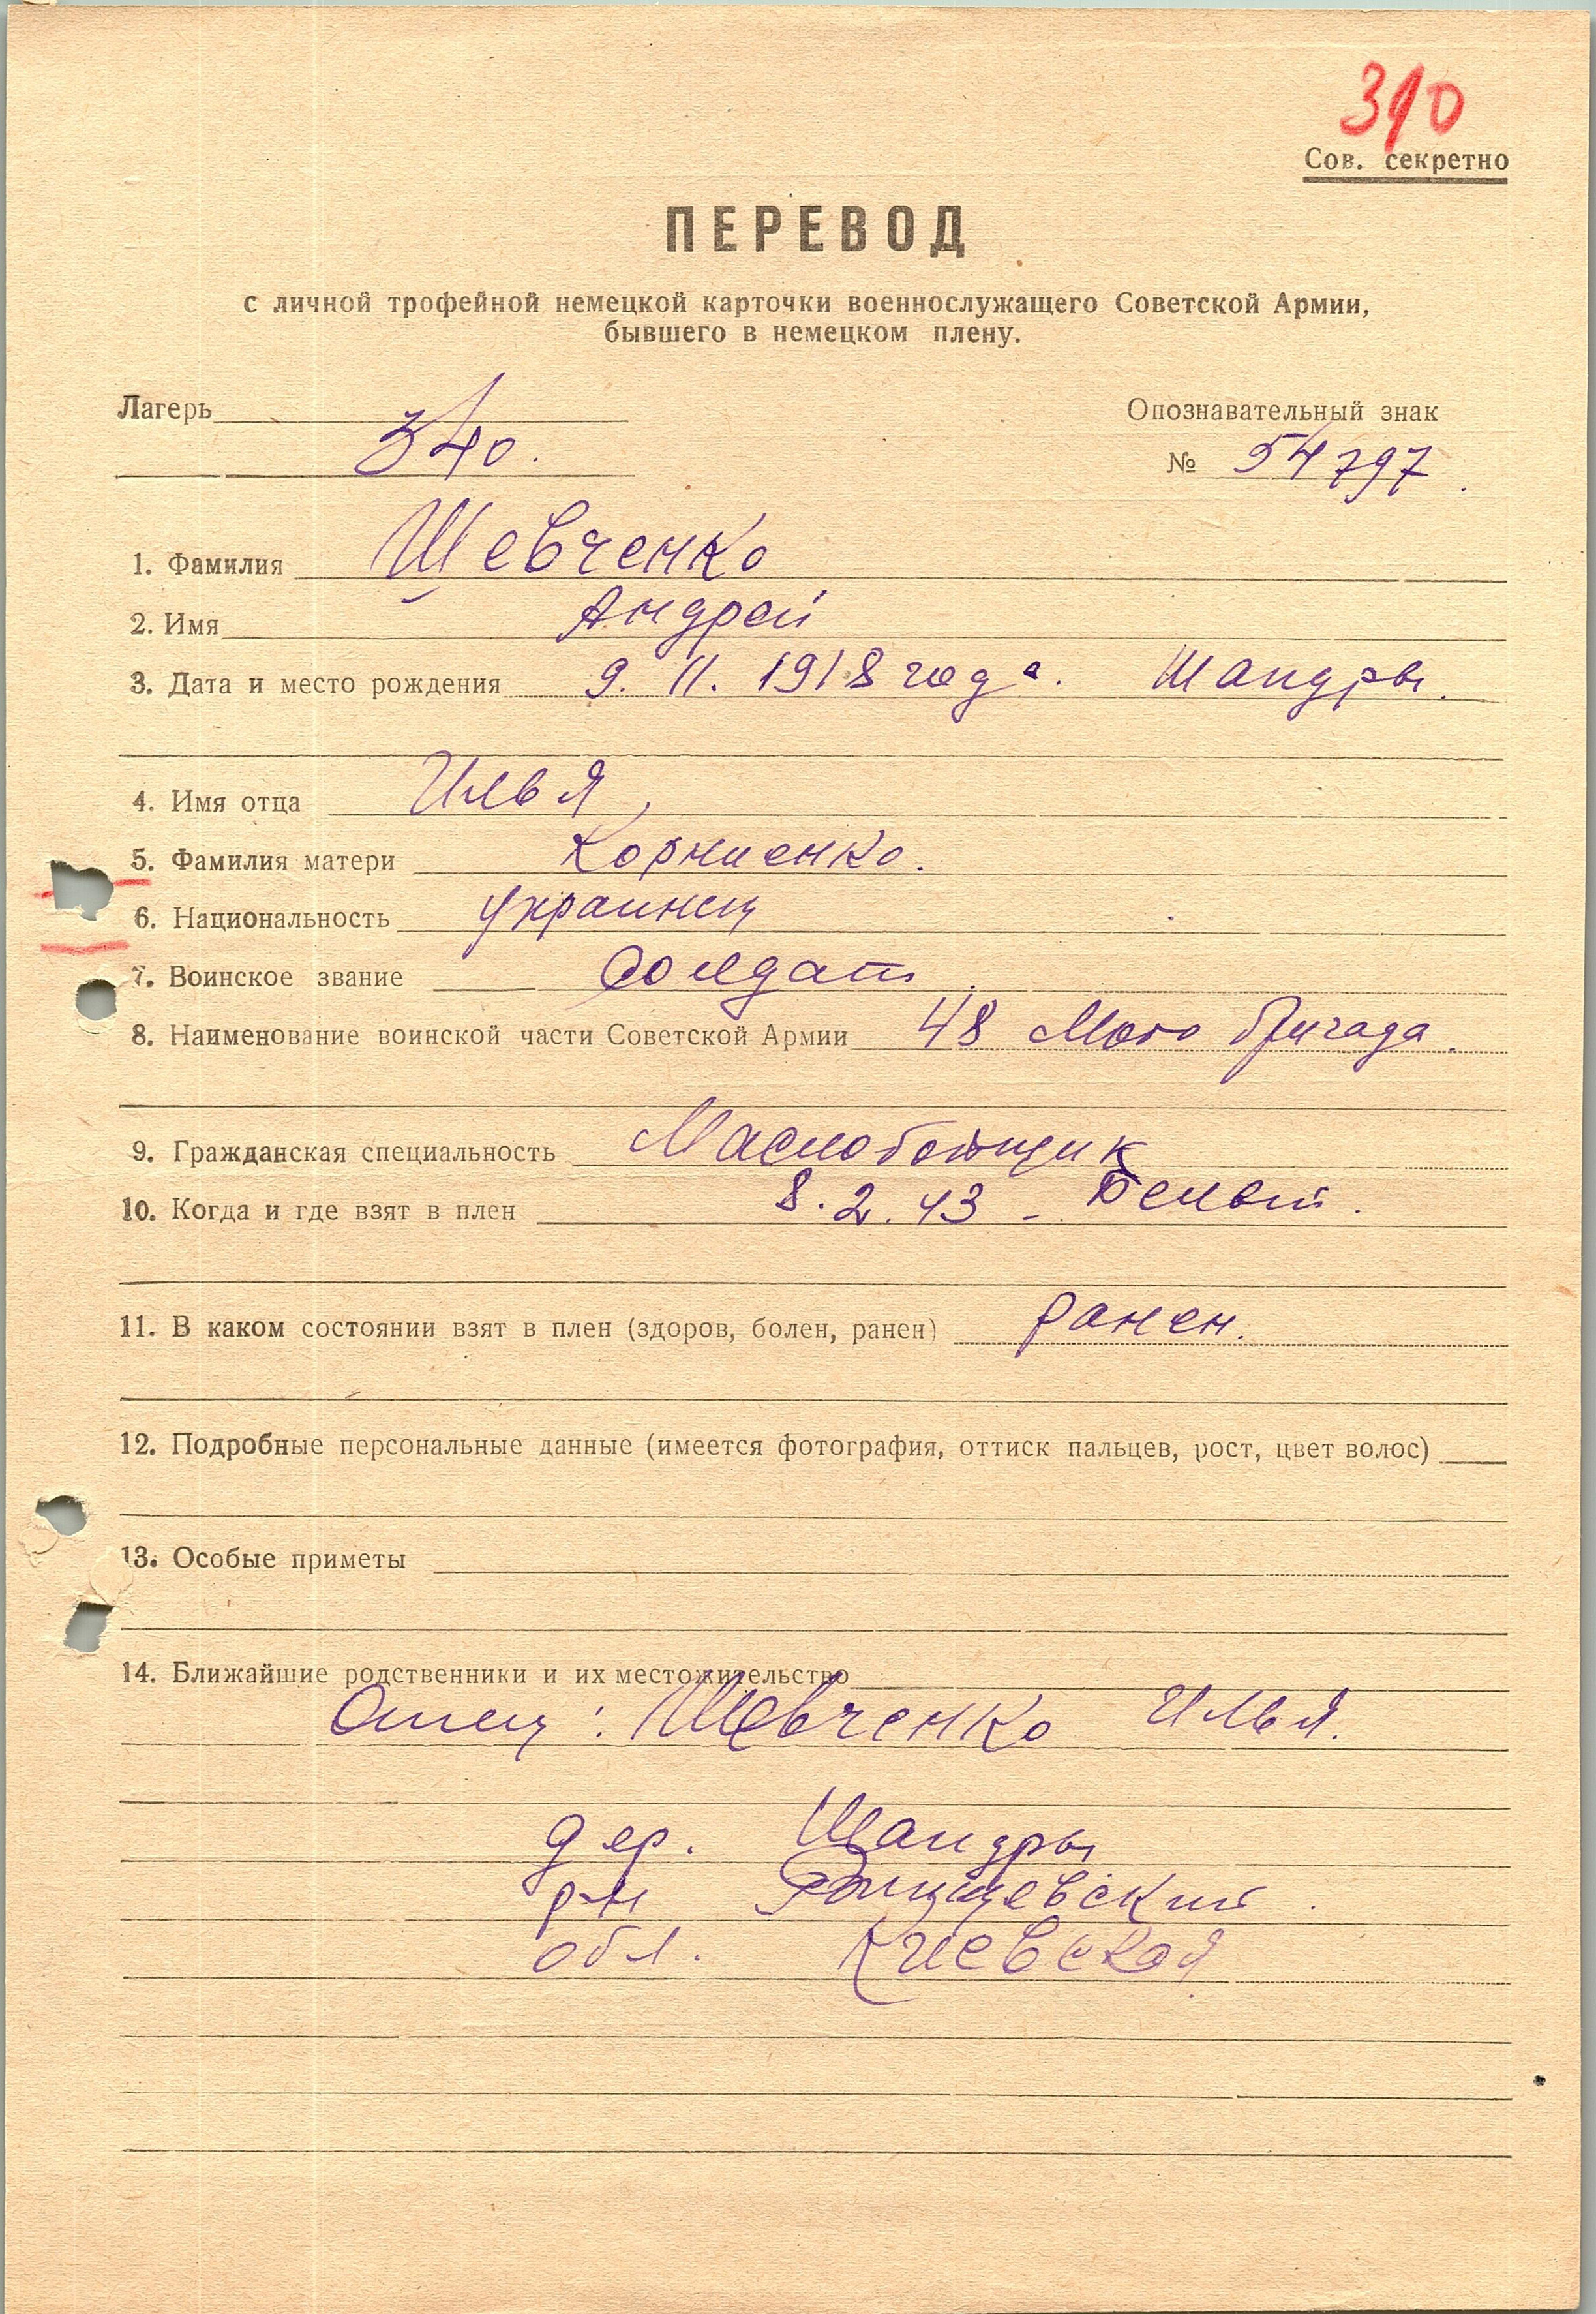 310
Сов. секретно
ПЕРЕВОД
с личной трофейной немецкой карточки военнослужащего Советской Армии,
бывшего в немецком плену.
Лагерь Опознавательный знак
340. № 54797.
1. Фамилия Шевченко
2. Имя Андрей
3. Дата и место рождения 9. 11. 1918 года. Шандры.
4. Имя отца Илья
5. Фамилия матери Корниенко.
6. Национальность украинец
7. Воинское звание Солдат.
8. Наименование воинской части Советской Армии 48 Мото бригада.
9. Гражданская специальность Маслобойщик
10. Когда и где взят в плен 8.2.43 - Белый.
11. В каком состоянии взят в плен (здоров, болен, ранен) ранен.
12. Подробные персональные данные (имеется фотография, оттиск пальцев, рост, цвет волос)
13. Особые приметы
14. Ближайшие родственники и их местожительство
Отец: Шевченко Илья.
дер. Шандры
р-н
обл. Киевская